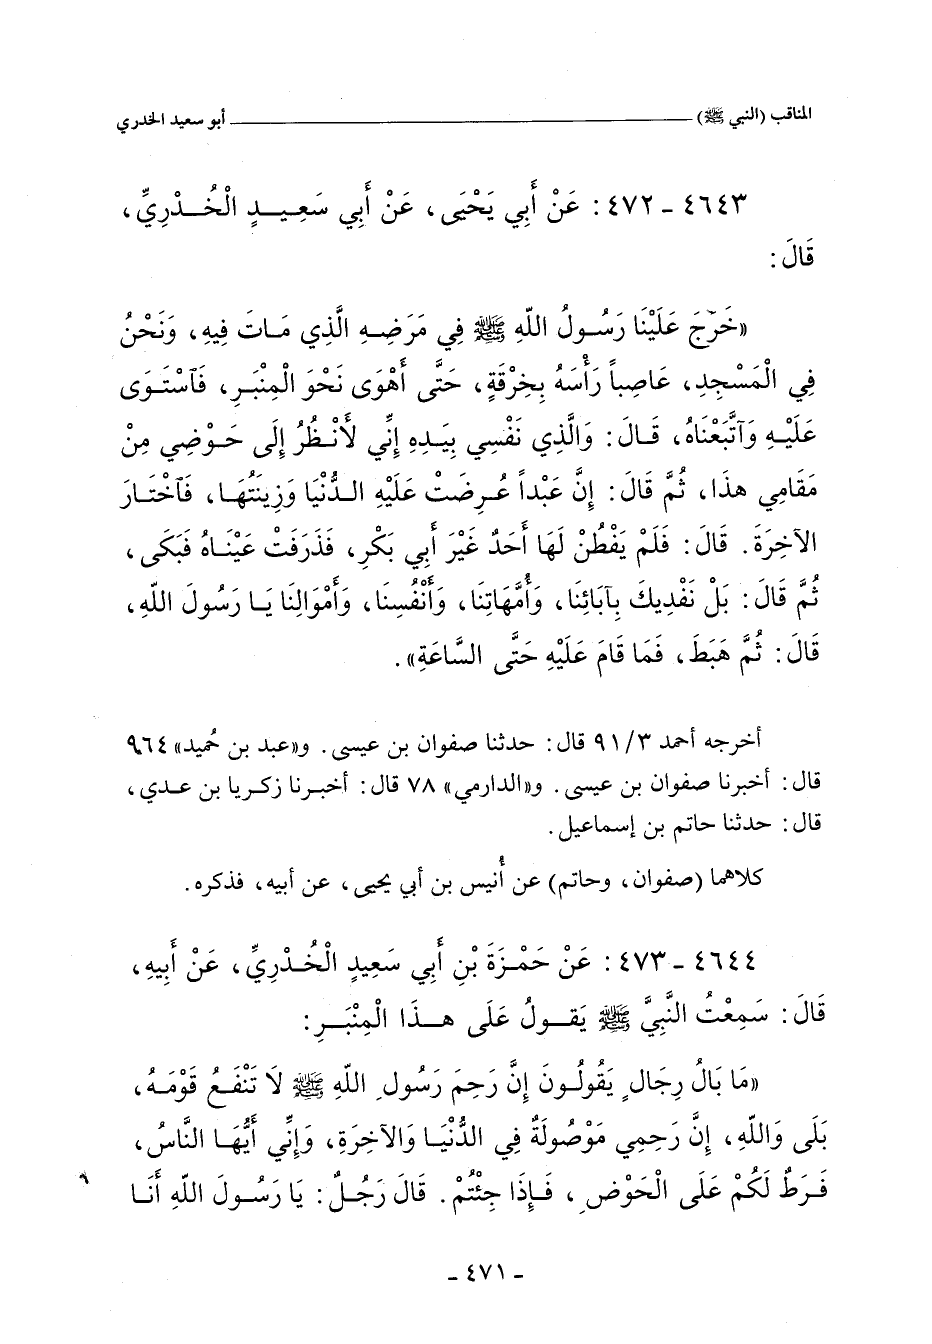 المناقب (النبي ﷺ) ــــــــــ أبو سعيد الخدري
٤٦٤٣ ـ ٤٧٢ : عَنْ أَبِي يَحْيَى، عَنْ أَبِي سَعِيدٍ الْخُدْرِيِّ،
قَالَ :
«خَرَجَ عَلَيْنَا رَسُولُ اللهِ ﷺ فِي مَرَضِهِ الَّذِي مَاتَ فِيهِ، وَنَحْنُ
فِي الْمَسْجِدِ، عَاصِباً رَأْسَهُ بِخِرْقَةٍ، حَتَّى أَهْوَى نَحْوَ الْمِنْبَرِ، فَآسْتَوَى
عَلَيْهِ وَآتَّبَعْنَاهُ، قَالَ : وَالَّذِي نَفْسِي بِيَدِهِ إِنِّي لأَنْظُرُ إِلَى حَوْضِي مِنْ
مَقَامِي هٰذَا، ثُمَّ قَالَ : إِنَّ عَبْداً عُرِضَتْ عَلَيْهِ الدُّنْيَا وَزِينَتُهَا، فَآخْتَارَ
الآخِرَةَ. قَالَ : فَلَمْ يَفْطُنْ لَهَا أَحَدٌ غَيْرَ أَبِي بَكْرٍ، فَذَرَفَتْ عَيْنَاهُ فَبَكَى،
ثُمَّ قَالَ : بَلْ نَفْدِيكَ بِآبَائِنَا، وَأُمَّهَاتِنَا، وَأَنْفُسِنَا، وَأَمْوَالِنَا يَا رَسُولَ اللهِ،
قَالَ : ثُمَّ هَبَطَ، فَمَا قَامَ عَلَيْهِ حَتَّى السَّاعَةِ».
أخرجه أحمد ٩١/٣ قال : حدثنا صفوان بن عيسى. و«عبد بن حُميد» ٩٦٤
قال : أخبرنا صفوان بن عيسى. و«الدارمي» ٧٨ قال : أخبرنا زكريا بن عدي،
قال : حدثنا حاتم بن إسماعيل.
كلاهما (صفوان، وحاتم) عن أُنيس بن أبي يحيى، عن أبيه، فذكره.
٤٦٤٤ ـ ٤٧٣ : عَنْ حَمْزَةَ بْنِ أَبِي سَعِيدٍ الْخُدْرِيِّ، عَنْ أَبِيهِ،
قَالَ : سَمِعْتُ النَّبِيَّ ﷺ يَقُولُ عَلَى هٰذَا الْمِنْبَرِ :
«مَا بَالُ رِجَالٍ يَقُولُونَ إِنَّ رَحِمَ رَسُولِ اللهِ ﷺ لَا تَنْفَعُ قَوْمَهُ،
بَلَى وَاللهِ، إِنَّ رَحِمِي مَوْصُولَةٌ فِي الدُّنْيَا وَالآخِرَةِ، وَإِنِّي أَيُّهَا النَّاسُ،
فَرَطٌ لَكُمْ عَلَى الْحَوْضِ، فَإِذَا جِئْتُمْ. قَالَ رَجُلٌ : يَا رَسُولَ اللهِ أَنَا
ـ ٤٧١ ـ